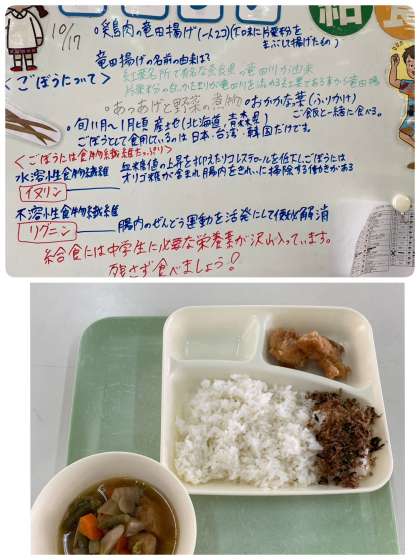 給食
10/17
・鶏肉の竜田揚げ(一人2コ)(下味に片栗粉を
まぶして揚げたもの)
竜田揚げの名前の由来は?
紅葉名所で有名な奈良県の竜田川が由来
<ごぼうについて>
・あつあげと野菜の煮物 ・おかかな葉(ふりかけ)
ご飯と一緒に食べる。
・旬11月〜1月頃 産土也(北海道、青森県)
ごぼうとして食用にしているは日本、台湾、韓国だけです。
<ごぼうには食物繊維たっぷり>
水溶性食物繊維
イヌリン
血糖値の上昇を抑えたりコレステロールを低下しごぼうには
オリゴ糖が含まれ腸内をきれいに掃除する働きがある
不溶性食物繊維
リグニン
腸内のぜんどう運動を活発にして便秘解消
給食には中学生に必要な栄養素が沢山入っています。
残さず食べましょう!